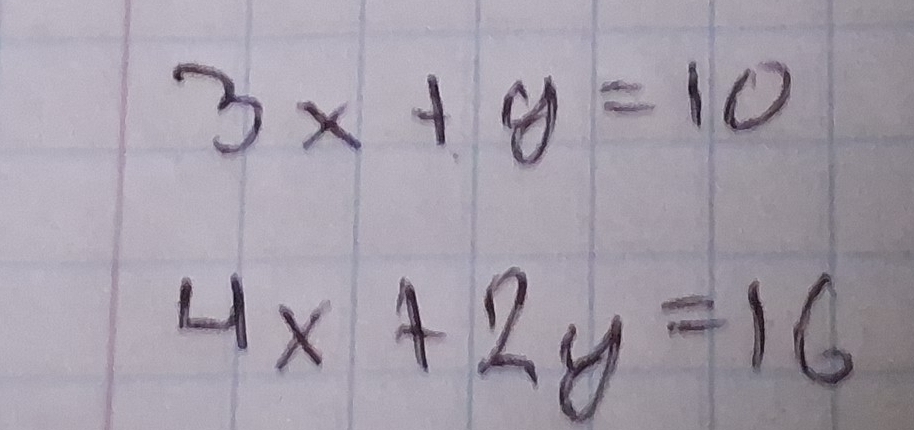 3x + y = 10
4x + 2y = 16